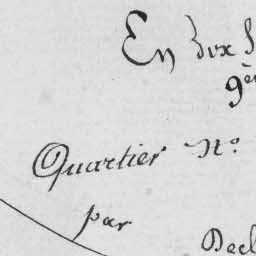 En dix
9è
Quartier N.º
par
Decl